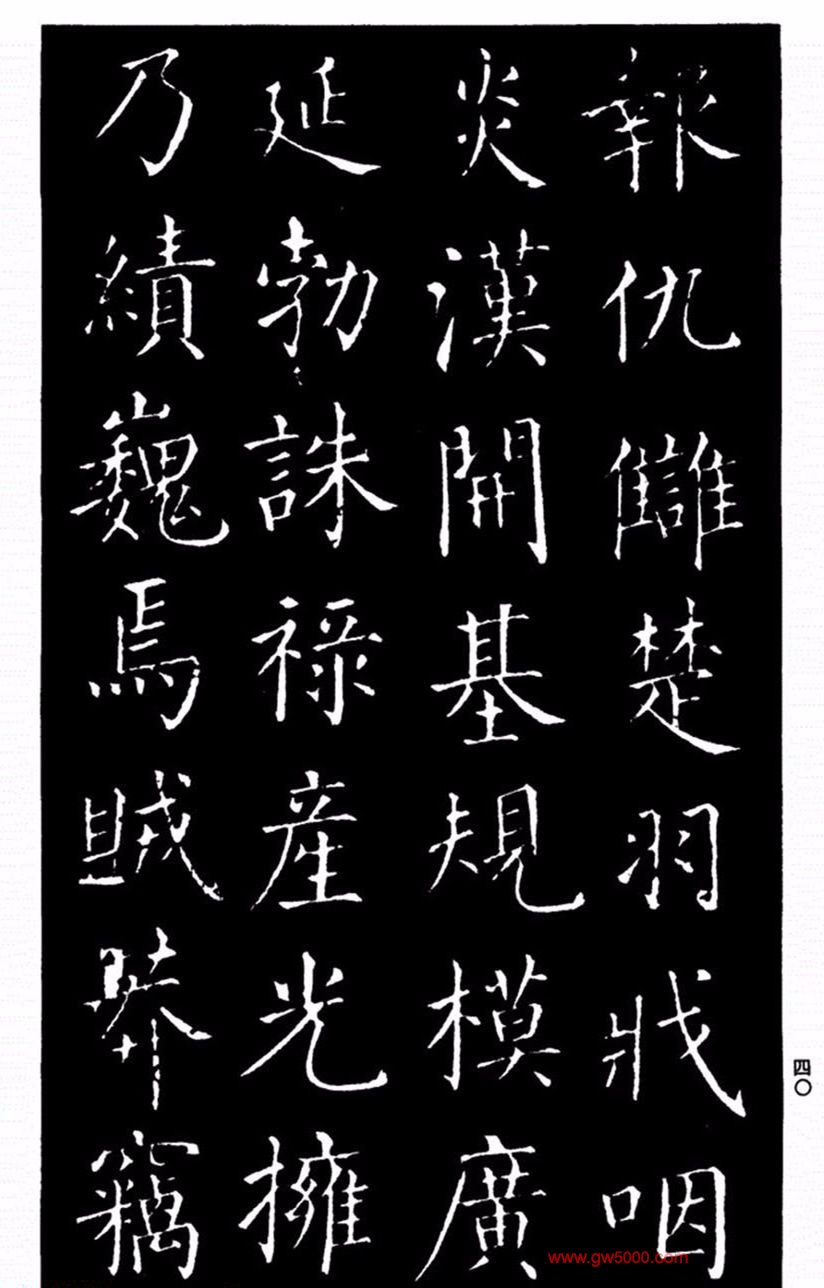 報仇讎楚羽戕咽
炎漢開基規模廣
延勃誅禄産光擁
乃績巍焉賊莽竊
四〇
www.gw5000.com